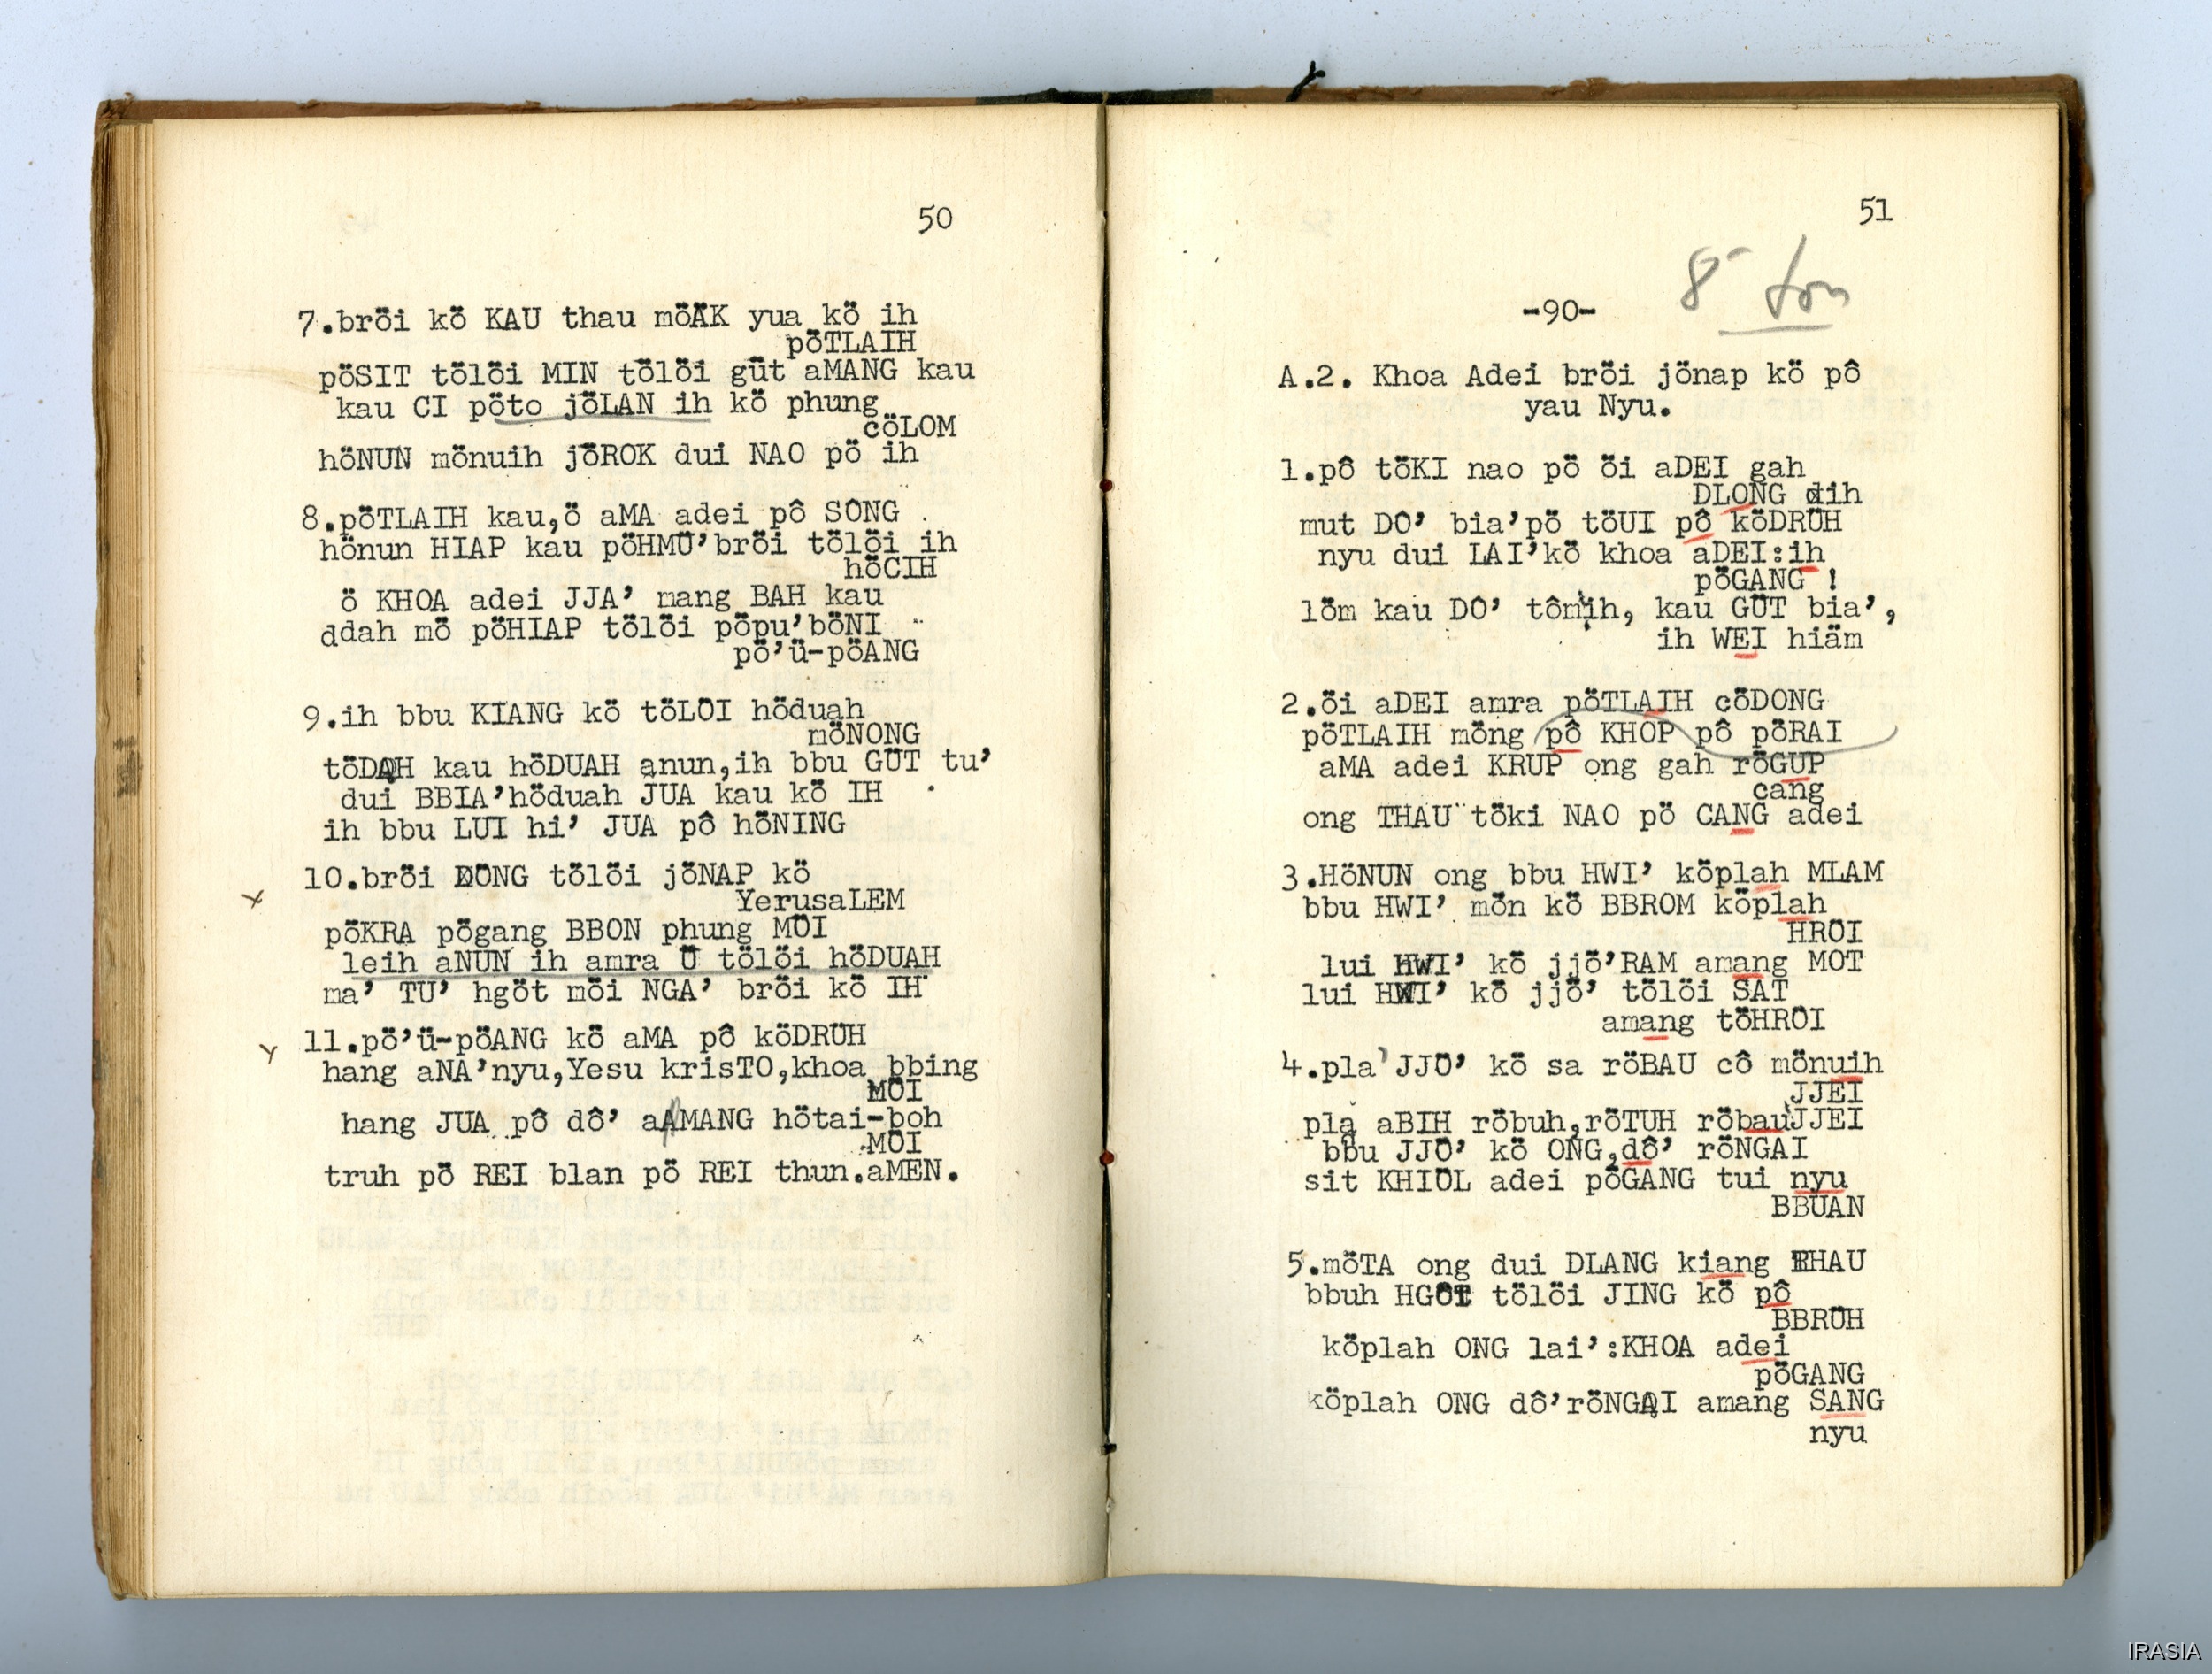 50
7.bröi kö KAU thau möÄK yua kö ih
pöTLAIH
pöSIT tölöi MIN tölöi güt aMANG kau
kau CI pöto jöLAN ih kö phung
cöLOM
höNUN mönuih jöROK dui NAO pö ih
8.pöTLAIH kau,ö aMA adei pô SÔNG
hönun HIAP kau pöHMU'bröi tölöi ih
höCIH
ö KHOA adei JJA' mang BAH kau
ddah mö pöHIAP tölöi pöpu'böNI
pö'ü-pöANG
9.ih bbu KIANG kö töLÖI höduah
möNONG
töDAH kau höDUAH anun,ih bbu GÜT tu'
dui BBIA'höduah JUA kau kö IH
ih bbu LUI hi' JUA pô höNING
10.bröi DÖNG tölöi jöNAP kö
YerusaLEM
pöKRA pögang BBON phung MÖI
leih aNUN ih amra Ü tölöi höDUAH
ma' TU' hgöt möi NGA' bröi kö IH
11.pö'ü-pöANG kö aMA pô köDRÜH
hang aNA'nyu,Yesu krisTO,khoa bbing
MÖI
hang JUA pô dô' aAMANG hötai-boh
MÖI
truh pö REI blan pö REI thun.aMEN.
51
8 ton
-90-
A.2. Khoa Adei bröi jönap kö pô
yau Nyu.
1.pô töKI nao pö öi aDEI gah
DLONG dih
mut DÔ' bia'pö töUI pô köDRÜH
nyu dui LAI'kö khoa aDEI:ih
pöGANG !
löm kau DÔ' tômih, kau GÜT bia',
ih WEI hiäm
2.öi aDEI amra pöTLAIH cöDONG
pöTLAIH möng pô KHÖP pô pöRAI
aMA adei KRUP ong gah röGUP
cang
ong THAU töki NAO pö CANG adei
3.HöNUN ong bbu HWI' köplah MLAM
bbu HWI' mön kö BBROM köplah
HRÖI
lui HWI' kö jjö'RAM amang MOT
lui HWI' kö jjö' tölöi SAT
amang töHRÖI
4.pla'JJÖ' kö sa röBAU cô mönuih
JJEI
pla aBIH röbuh,röTUH röbauJJEI
bbu JJÖ' kö ONG,dô' röNGAI
sit KHIÖL adei pöGANG tui nyu
BBUAN
5.möTA ong dui DLANG kiang THAU
bbuh HGÖT tölöi JING kö pô
BBRÜH
köplah ONG lai':KHOA adei
pöGANG
köplah ONG dô'röNGAI amang SANG
nyu
IRASIA